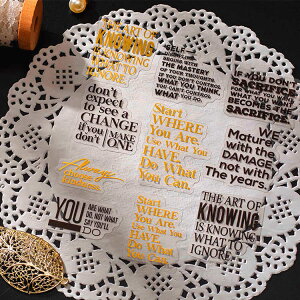 THE ART OF
KNOWING
IS KNOWING
WHAT TO
IGNORE.
SELF
MASTERY
WHAT YOU DO.
IF YOU DON'T
SACRIFICE
WHAT YOU
BECOMES
SACRIFICE
don't
expect to
see a
CHANGE
if you don't
MAKE
ONE
Start
WHERE
You Are.
Use What You
HAVE.
Do What
You Can.
WE
Mature
with the
DAMAGE
not with
The years.
Always
choose
kindness
YOU
ARE WHAT
DO, NOT WHAT
YOU'LL
DO
Start
WHERE
You Are.
Use What You
HAVE.
Do What
You Can.
THE ART OF
KNOWING
IS KNOWING
WHAT TO
IGNORE.